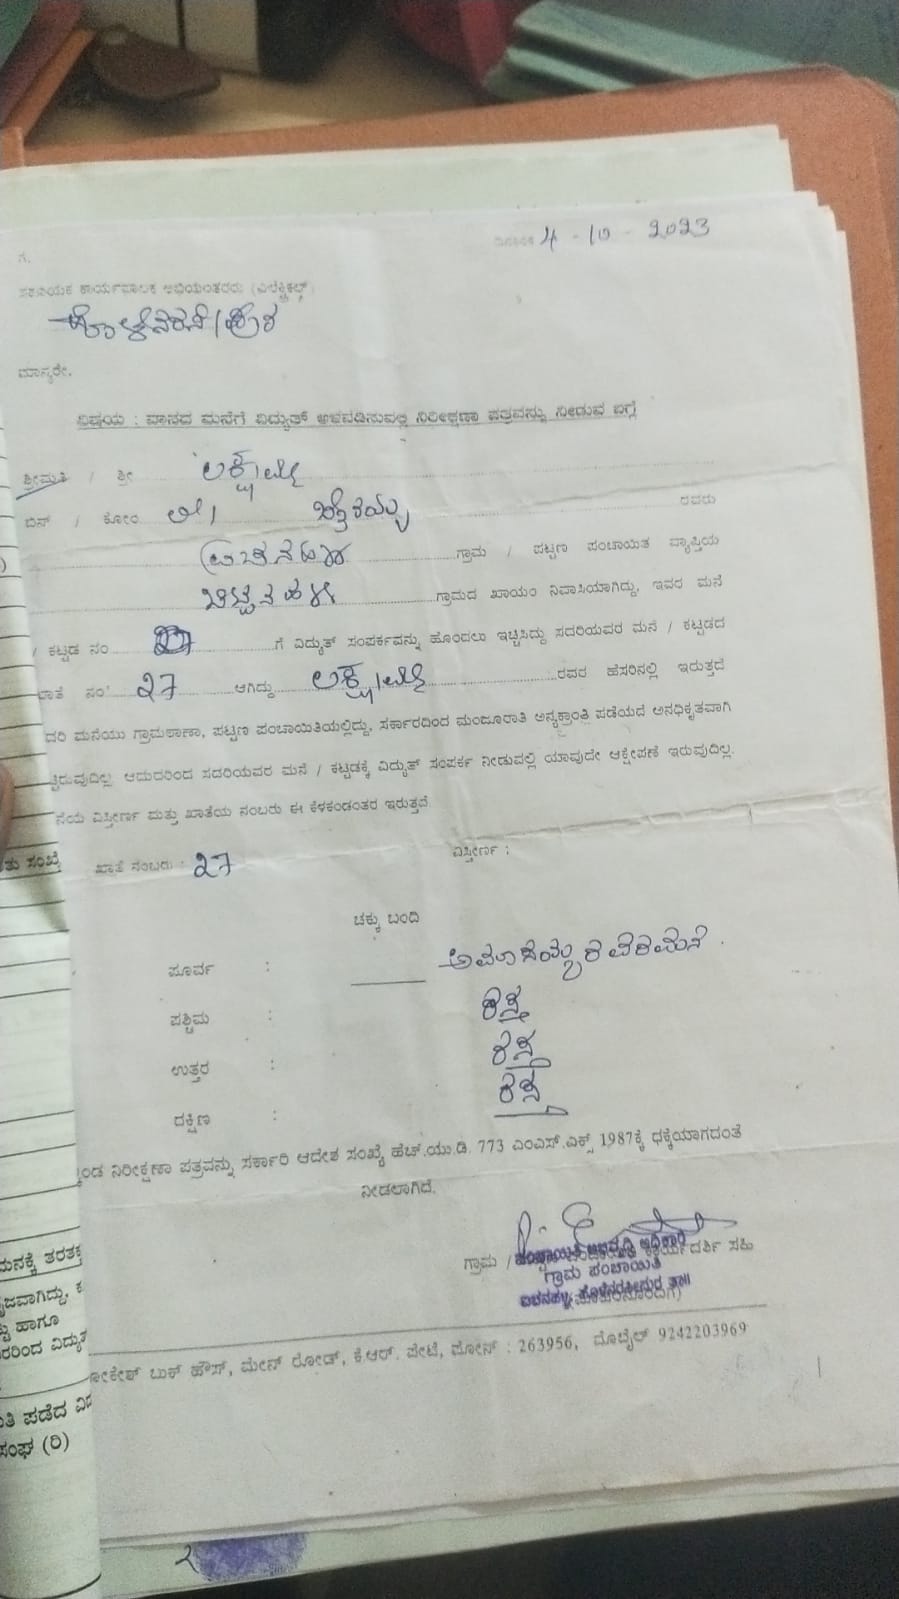 ದಿನಾಂಕ 4 - 10 - 2023
ಗೆ,
ಸಹಾಯಕ ಕಾರ್ಯಪಾಲಕ ಅಭಿಯಂತರರು (ಎಲೆಕ್ಟ್ರಿಕಲ್)
ಮಾನ್ಯರೇ,
ವಿಷಯ : ವಾಸದ ಮನೆಗೆ ವಿದ್ಯುತ್ ಅಳವಡಿಸುವಲ್ಲಿ ನಿರೀಕ್ಷಣಾ ಪತ್ರವನ್ನು ನೀಡುವ ಬಗ್ಗೆ
ಶ್ರೀಮತಿ / ಶ್ರೀ ಲಕ್ಷ್ಮಮ್ಮ
ಬಿನ್ / ಕೋಂ ರವರು
ಗ್ರಾಮ / ಪಟ್ಟಣ ಪಂಚಾಯಿತ ವ್ಯಾಪ್ತಿಯ
ಗ್ರಾಮದ ಖಾಯಂ ನಿವಾಸಿಯಾಗಿದ್ದು, ಇವರ ಮನೆ
/ ಕಟ್ಟಡ ನಂ ಗೆ ವಿದ್ಯುತ್ ಸಂಪರ್ಕವನ್ನು ಹೊಂದಲು ಇಚ್ಚಿಸಿದ್ದು ಸದರಿಯವರ ಮನೆ / ಕಟ್ಟಡದ
ಖಾತೆ ನಂ 27 ಆಗಿದ್ದು ಲಕ್ಷ್ಮಮ್ಮ ರವರ ಹೆಸರಿನಲ್ಲಿ ಇರುತ್ತದೆ
ದರಿ ಮನೆಯು ಗ್ರಾಮಠಾಣಾ, ಪಟ್ಟಣ ಪಂಚಾಯಿತಿಯಲ್ಲಿದ್ದು, ಸರ್ಕಾರದಿಂದ ಮಂಜೂರಾತಿ ಅನ್ಯಕ್ರಾಂತಿ ಪಡೆಯದೆ ಅನಧಿಕೃತವಾಗಿ
ಟ್ಟಿರುವುದಿಲ್ಲ ಆದುದರಿಂದ ಸದರಿಯವರ ಮನೆ / ಕಟ್ಟಡಕ್ಕೆ ವಿದ್ಯುತ್ ಸಂಪರ್ಕ ನೀಡುವಲ್ಲಿ ಯಾವುದೇ ಆಕ್ಷೇಪಣೆ ಇರುವುದಿಲ್ಲ.
ನೆಯ ವಿಸ್ತೀರ್ಣ ಮತ್ತು ಖಾತೆಯ ನಂಬರು ಈ ಕೆಳಕಂಡಂತರ ಇರುತ್ತದೆ.
ಖಾತೆ ನಂಬರು : 27 ವಿಸ್ತೀರ್ಣ :
ಚಕ್ಕು ಬಂದಿ
ಪೂರ್ವ :
ಪಶ್ಚಿಮ : ರಸ್ತೆ
ಉತ್ತರ : ರಸ್ತೆ
ದಕ್ಷಿಣ : ರಸ್ತೆ
ಂಡ ನಿರೀಕ್ಷಣಾ ಪತ್ರವನ್ನು ಸರ್ಕಾರಿ ಆದೇಶ ಸಂಖ್ಯೆ ಹೆಚ್.ಯು.ಡಿ. 773 ಎಂಎಸ್.ಎಕ್ಸ್ 1987ಕ್ಕೆ ಧಕ್ಕೆಯಾಗದಂತೆ
ನೀಡಲಾಗಿದೆ.
ಗ್ರಾಮ / ಕಾರ್ಯದರ್ಶಿ ಸಹಿ
ಪಂಚಾಯಿತಿ ಅಭಿವೃದ್ಧಿ ಅಧಿಕಾರಿ
ಗ್ರಾಮ ಪಂಚಾಯಿತಿ
ಲೋಕೇಶ್ ಬುಕ್ ಹೌಸ್, ಮೇನ್ ರೋಡ್, ಕೆ.ಆರ್. ಪೇಟೆ, ಫೋನ್ : 263956, ಮೊಬೈಲ್ 9242203969
ತು ಸಂಖ್ಯೆ
ಮನಕ್ಕೆ ತರತಕ್ಕ
ಜವಾಗಿದ್ದು, ಕ
ಟ್ಟ ಹಾಗೂ
ರರಿಂದ ವಿದ್ಯುತ್
ತಿ ಪಡೆದ ವಿದ
ಸಂಘ (ರಿ)